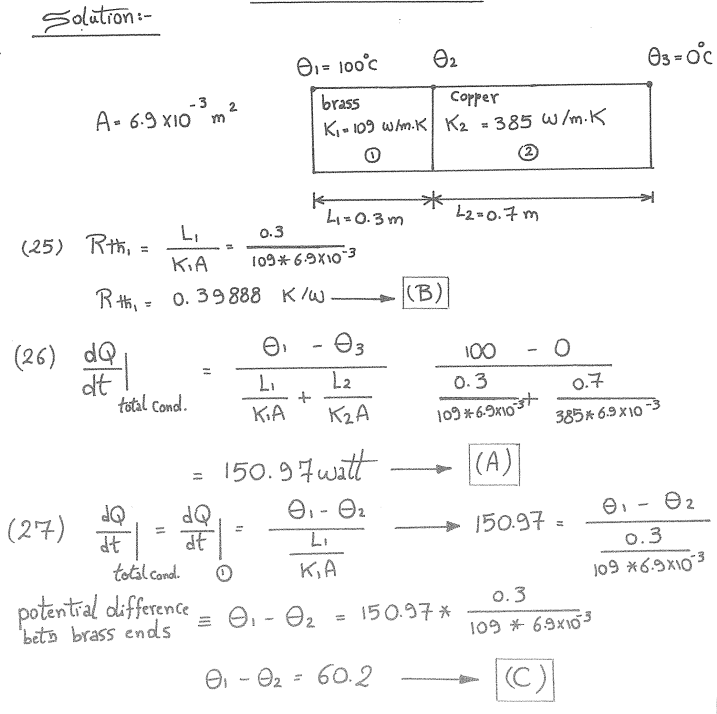 Solution:-
θ1 = 100°C θ2 θ3 = 0°C
A = 6.9 x10^-3 m^2
brass Copper
K1 = 109 W/m.K K2 = 385 W/m.K
① ②
L1 = 0.3 m L2 = 0.7 m
(25) Rth1 = L1 / K1A = 0.3 / 109 * 6.9 x10^-3
Rth1 = 0.39888 K/W → (B)
(26) dQ/dt | total cond. = θ1 - θ3 / (L1 / K1A + L2 / K2A) 100 - 0 / (0.3 / 109 * 6.9 x10^-3 + 0.7 / 385 * 6.9 x10^-3)
= 150.97 watt → (A)
(27) dQ/dt | total cond. = dQ/dt | ① = θ1 - θ2 / (L1 / K1A) → 150.97 = θ1 - θ2 / (0.3 / 109 * 6.9 x10^-3)
potential difference
betn brass ends ≡ θ1 - θ2 = 150.97 * 0.3 / 109 * 6.9 x10^-3
θ1 - θ2 = 60.2 → (C)